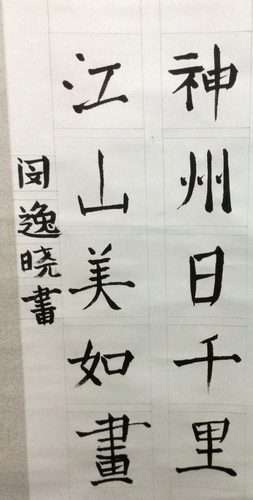 神州日千里
江山美如畫
闵逸晓書